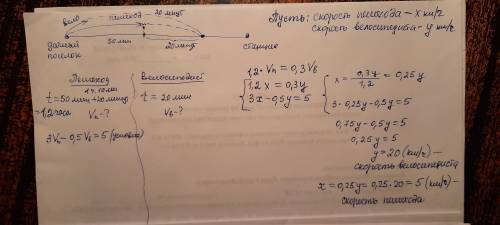 вело — пешеход - 20 минут
50 мин 20 минут
дачный
поселок
станция
Пусть: скорость пешехода - x км/ч
скорость велосипедиста - y км/ч
Пешеход
t = 50 мин + 20 минут
= 1,2 часа Vп - ?
3Vп - 0,5Vв = 5 (условие)
Велосипедист
t = 20 мин
Vв - ?
1,2 · Vп = 0,3Vв
1,2x = 0,3y
3x - 0,5y = 5
x = 0,3y / 1,2 = 0,25y
3 · 0,25y - 0,5y = 5
0,75y - 0,5y = 5
0,25y = 5
y = 20 (км/ч) -
скорость велосипедиста
x = 0,25y = 0,25 · 20 = 5 (км/ч) -
скорость пешехода